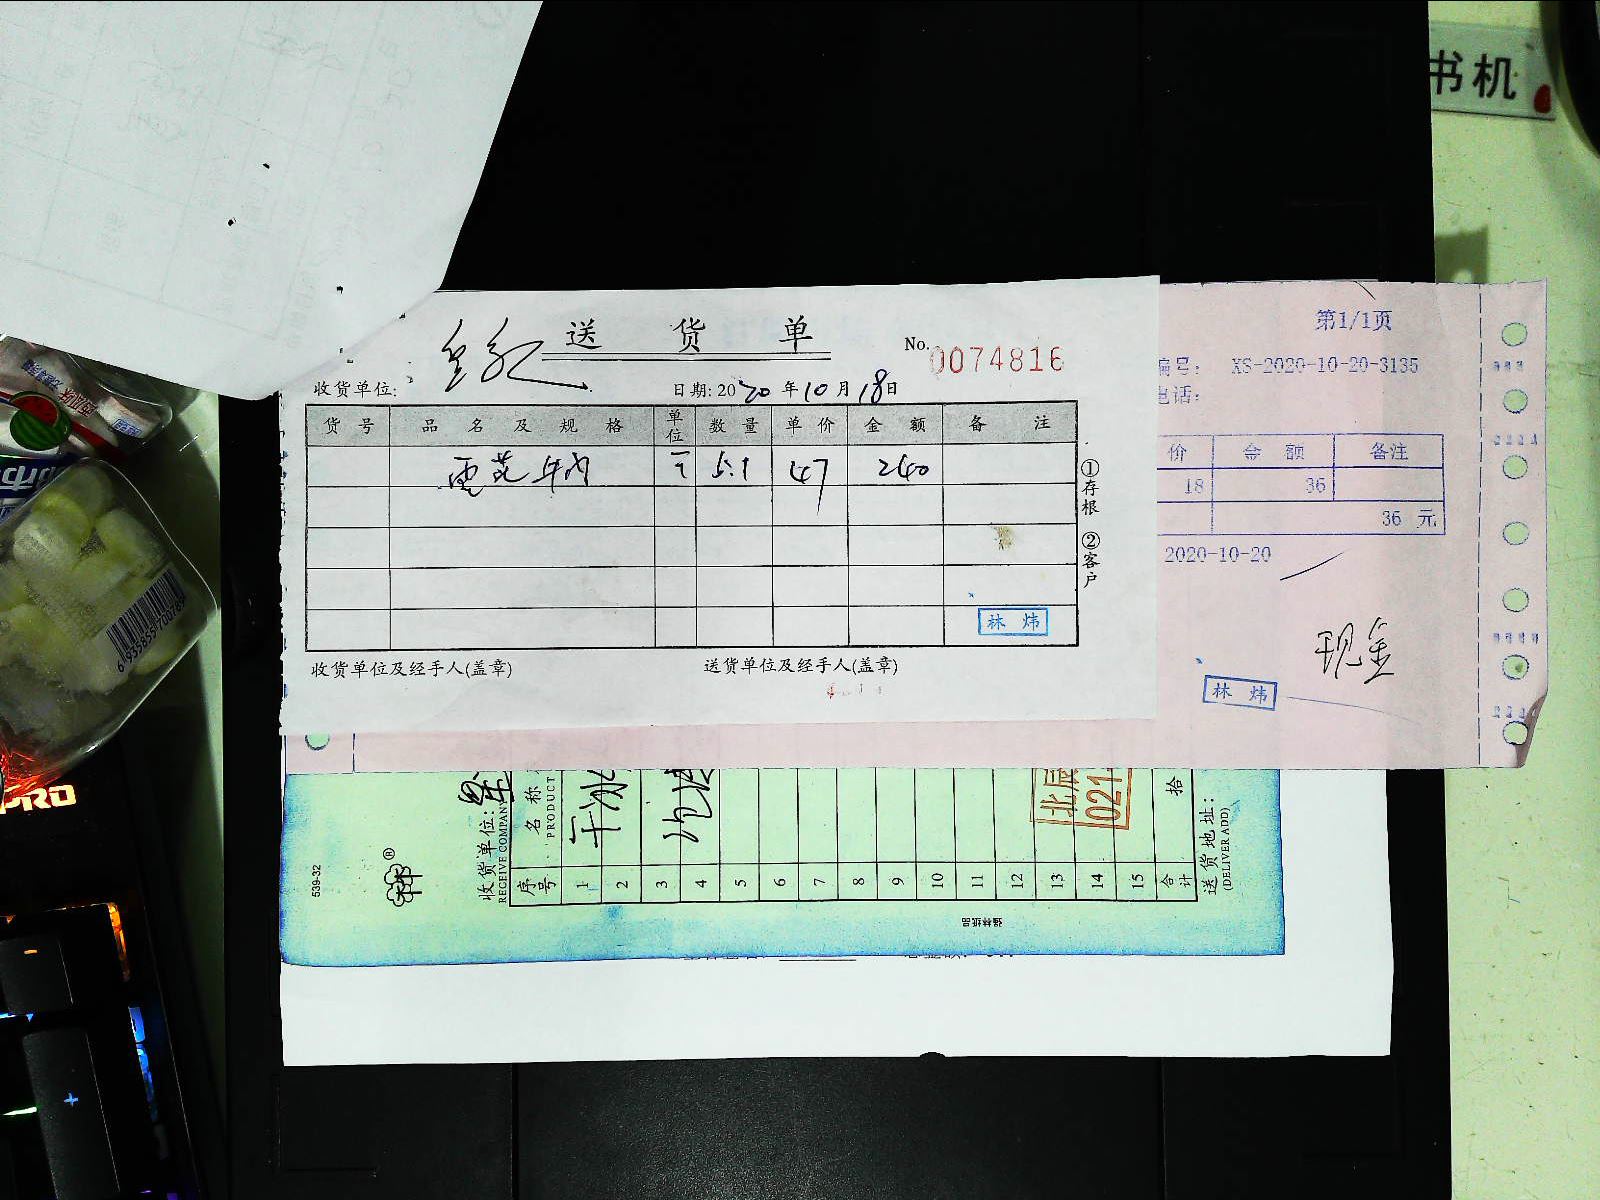 书机
送货单
No. 0074816
收货单位:
日期: 2020年10月18日
货号 品名及规格 单位 数量 单价 金额 备注
雪花牛肉 5.1 47 240
①存根 ②客户
林炜
收货单位及经手人(盖章) 送货单位及经手人(盖章)
第1/1页
编号: XS-2020-10-20-3135
电话:
价 金额 备注
18 36
36 元
2020-10-20
现金
林炜
539-32
收货单位:
RECEIVE COMPANY
序号 名称
PRODUCT
1 干冰
2
3
4
5
6
7
8
9
10
11
12
13
14
15
合计 拾
北辰
021
送货地址:
(DELIVER ADD)
强林纸品
6935855700789
PRO